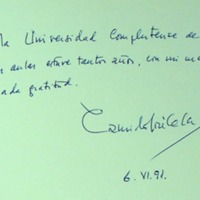 la Universidad Complutense de
aulas estuve tantos años, con mi
gratitud.
Camilo José Cela
6.VI.91.